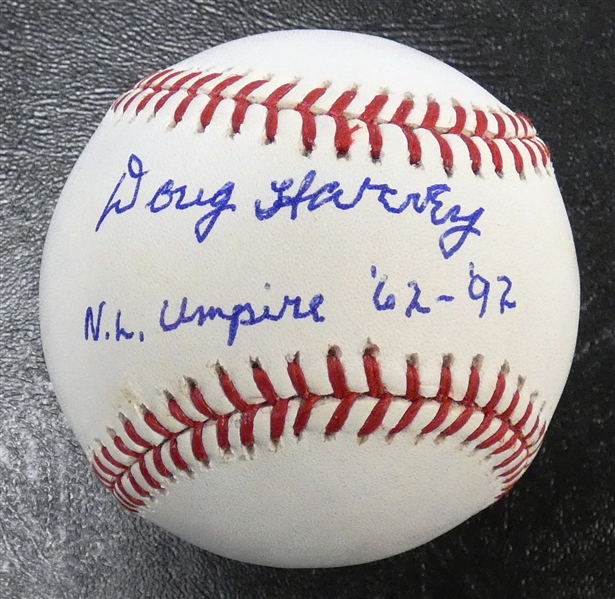 Doug Harvey
N.L. Umpire '62-'92